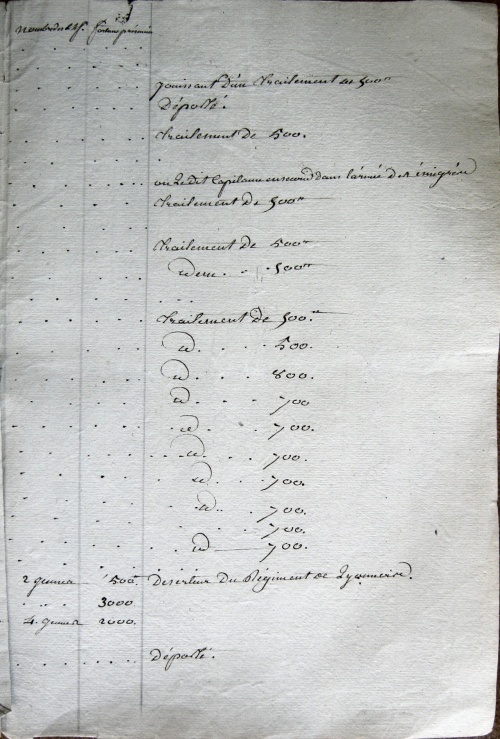 nombre d'enf. fortune présumée
jouissant d'un traitement de 500ʰ
Déporté.
traitement de 500.
on le dit Capitaine en second dans l'armée des émigrés
traitement de 500ʰ
traitement de 500ʰ
idem . . 500ʰ
traitement de 500ʰ
id . . . 500.
id . . . 800.
id . . . 700
id . . . 700.
id . . . 700.
id . . . 700.
id . . . 700.
. . . 700.
id 700.
2 1500 Deserteur Du Régiment de
3000
4. 2000.
Déporté.